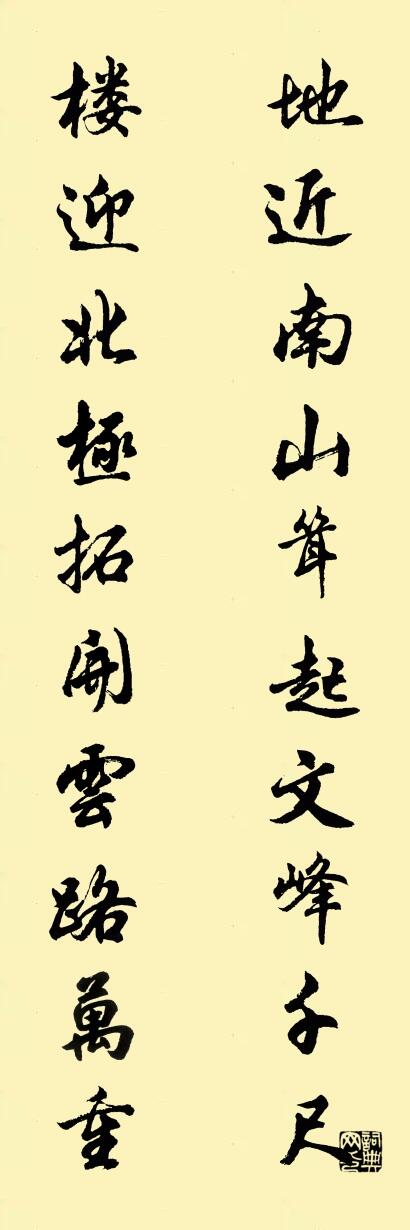 地近南山耸起文峰千尺
楼迎北極拓開雲路萬重
詞典网